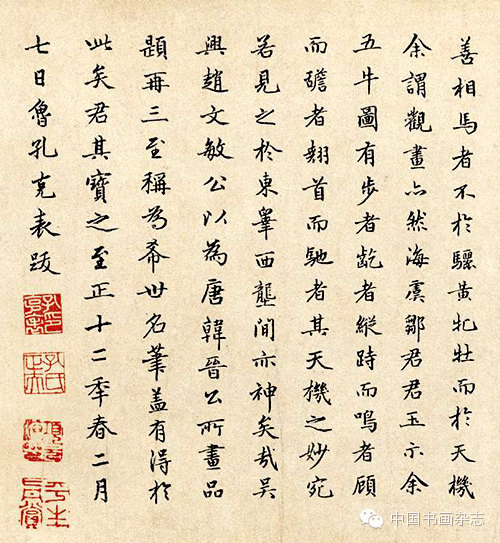 善相馬者不於驪黃牝牡而於天機
余謂觀畫亦然海虞鄒君君玉示余
五牛圖有步者齕者縱跱而鳴者顧
而者翹首而馳者其天機之妙宛
若見之於東睾西壟間亦神矣哉吳
興趙文敏公以為唐韓晉公所畫品
題再三至稱為希世名筆蓋有得於
此矣君其寶之至正十二秊春二月
七日魯孔克表跋
中国书画杂志